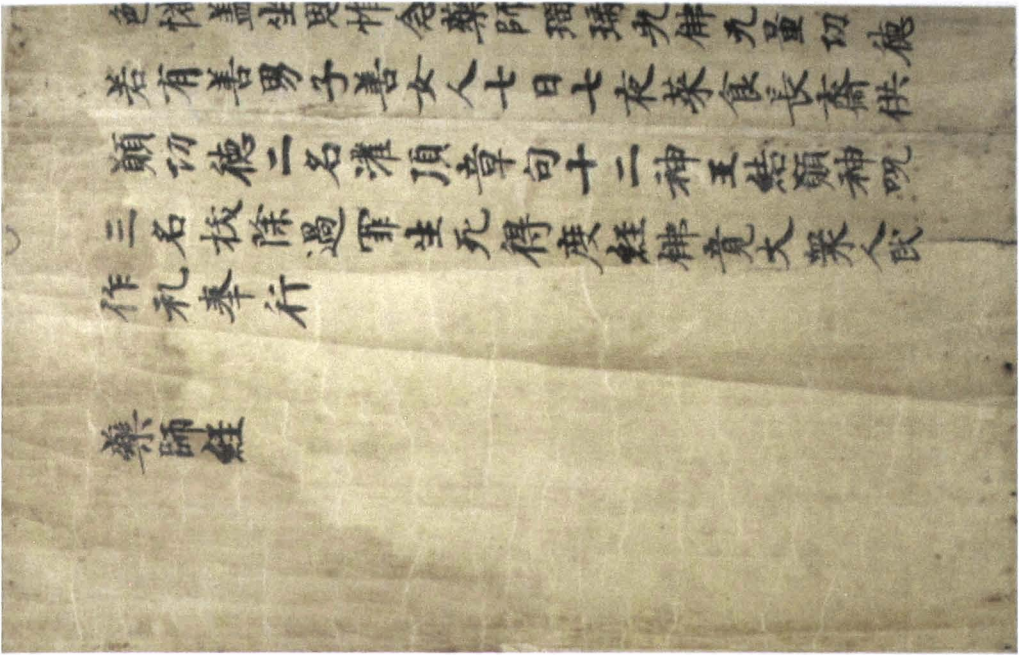 盖坐思惟念藥師瑠璃光佛无量功德
若有善男子善女人七日七夜菜食長齋供
願功德二名灌頂章句十二神王結願神呪
三名拔除過罪生死得度經佛竟大衆人民
作礼奉行
藥師經